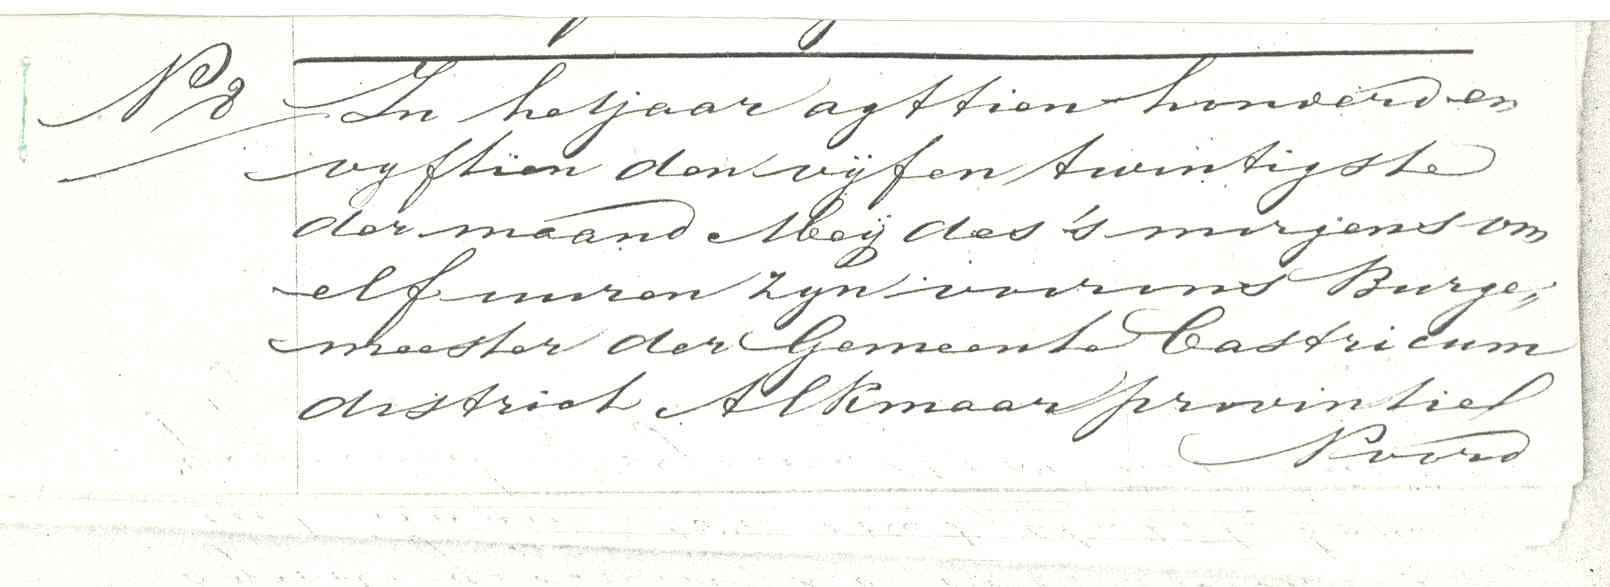 N 8
In het jaar agttien honderd en
vyftien den vijf en twintigste
der maand Meij des 's morgens om
elf uuren zyn voor ons Burge„
meester der Gemeente Castricum
district Alkmaar provintie
Noord